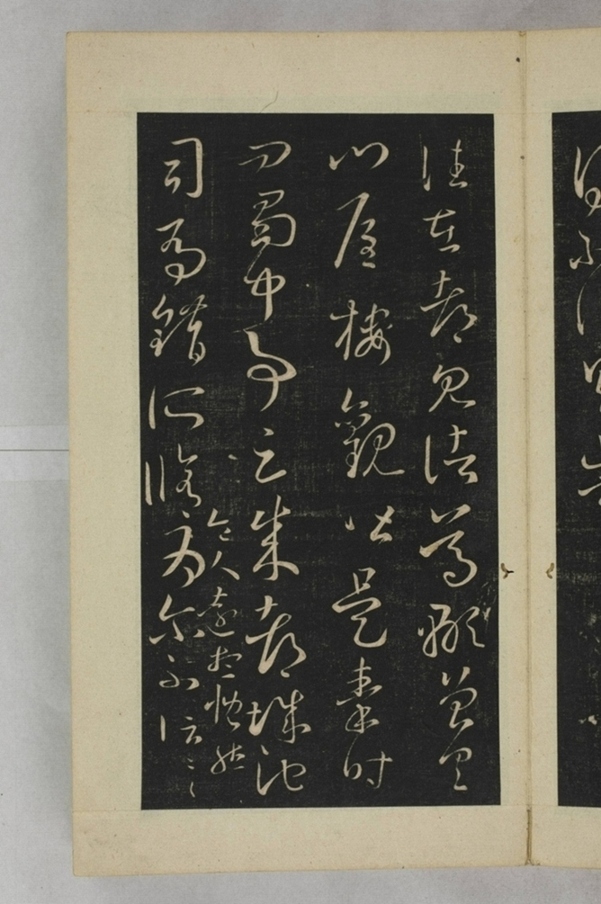 往在都見諸葛顒曾具
門屋樓觀皆是秦時
問蜀中事云成都城池
司馬錯所脩為尔不信
令人遠想慨然